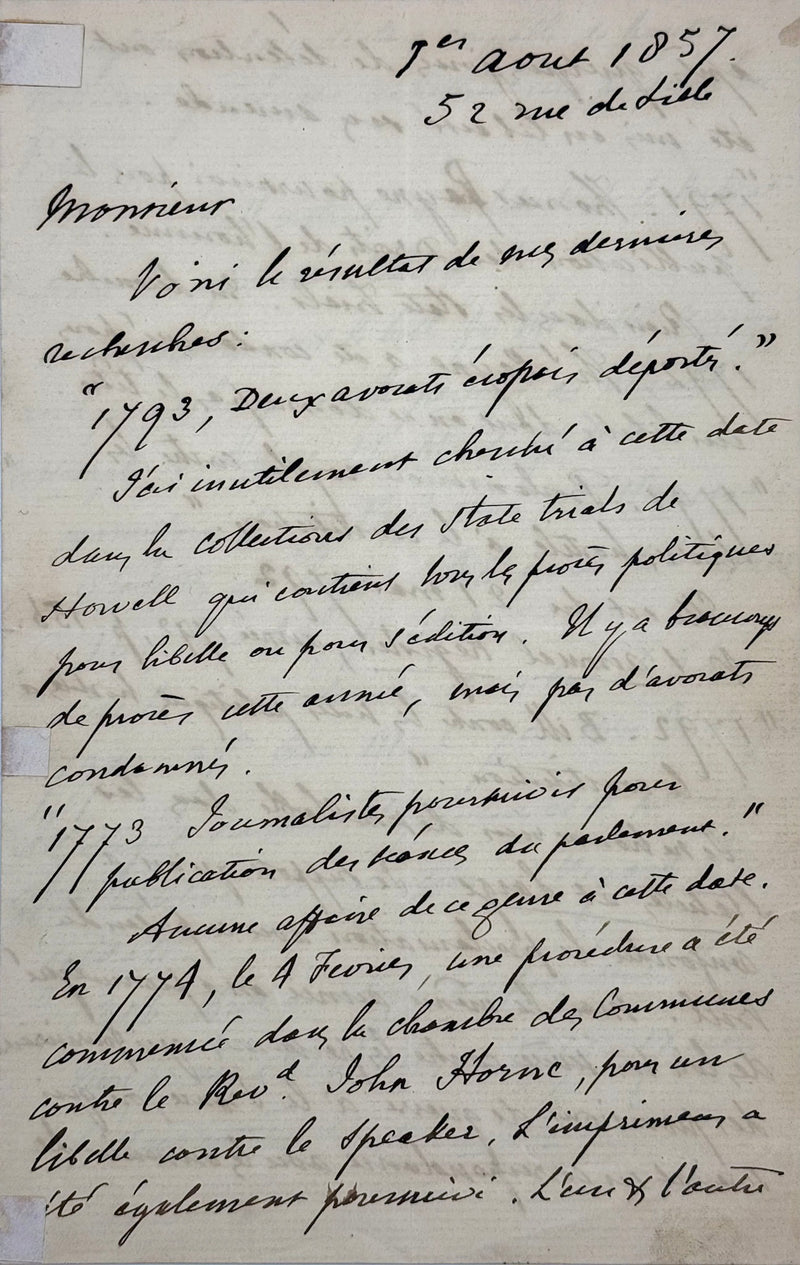 1er aout 1857.
52 rue de Lille
Monsieur
Voici le résultat de mes dernières
recherches:
"1793, Deux avocats écossais déportés."
J'ai inutilement cherché à cette date
dans la collections des State trials de
Howell qui contient tous les procès politiques
pour libelle ou pour sédition. Il y a beaucoup
de procès cette année, mais pas d'avocats
condamnés.
"1773 Journalistes poursuivis pour
publication des séances du parlement."
Aucune affaire de ce genre à cette date.
En 1774, le 4 Fevrier, une procédure a été
commencée dans la chambre des Communes
contre le Revd. John Horne, pour un
libelle contre le Speaker. L'imprimeur a
été également poursuivi. L'un & l'autre